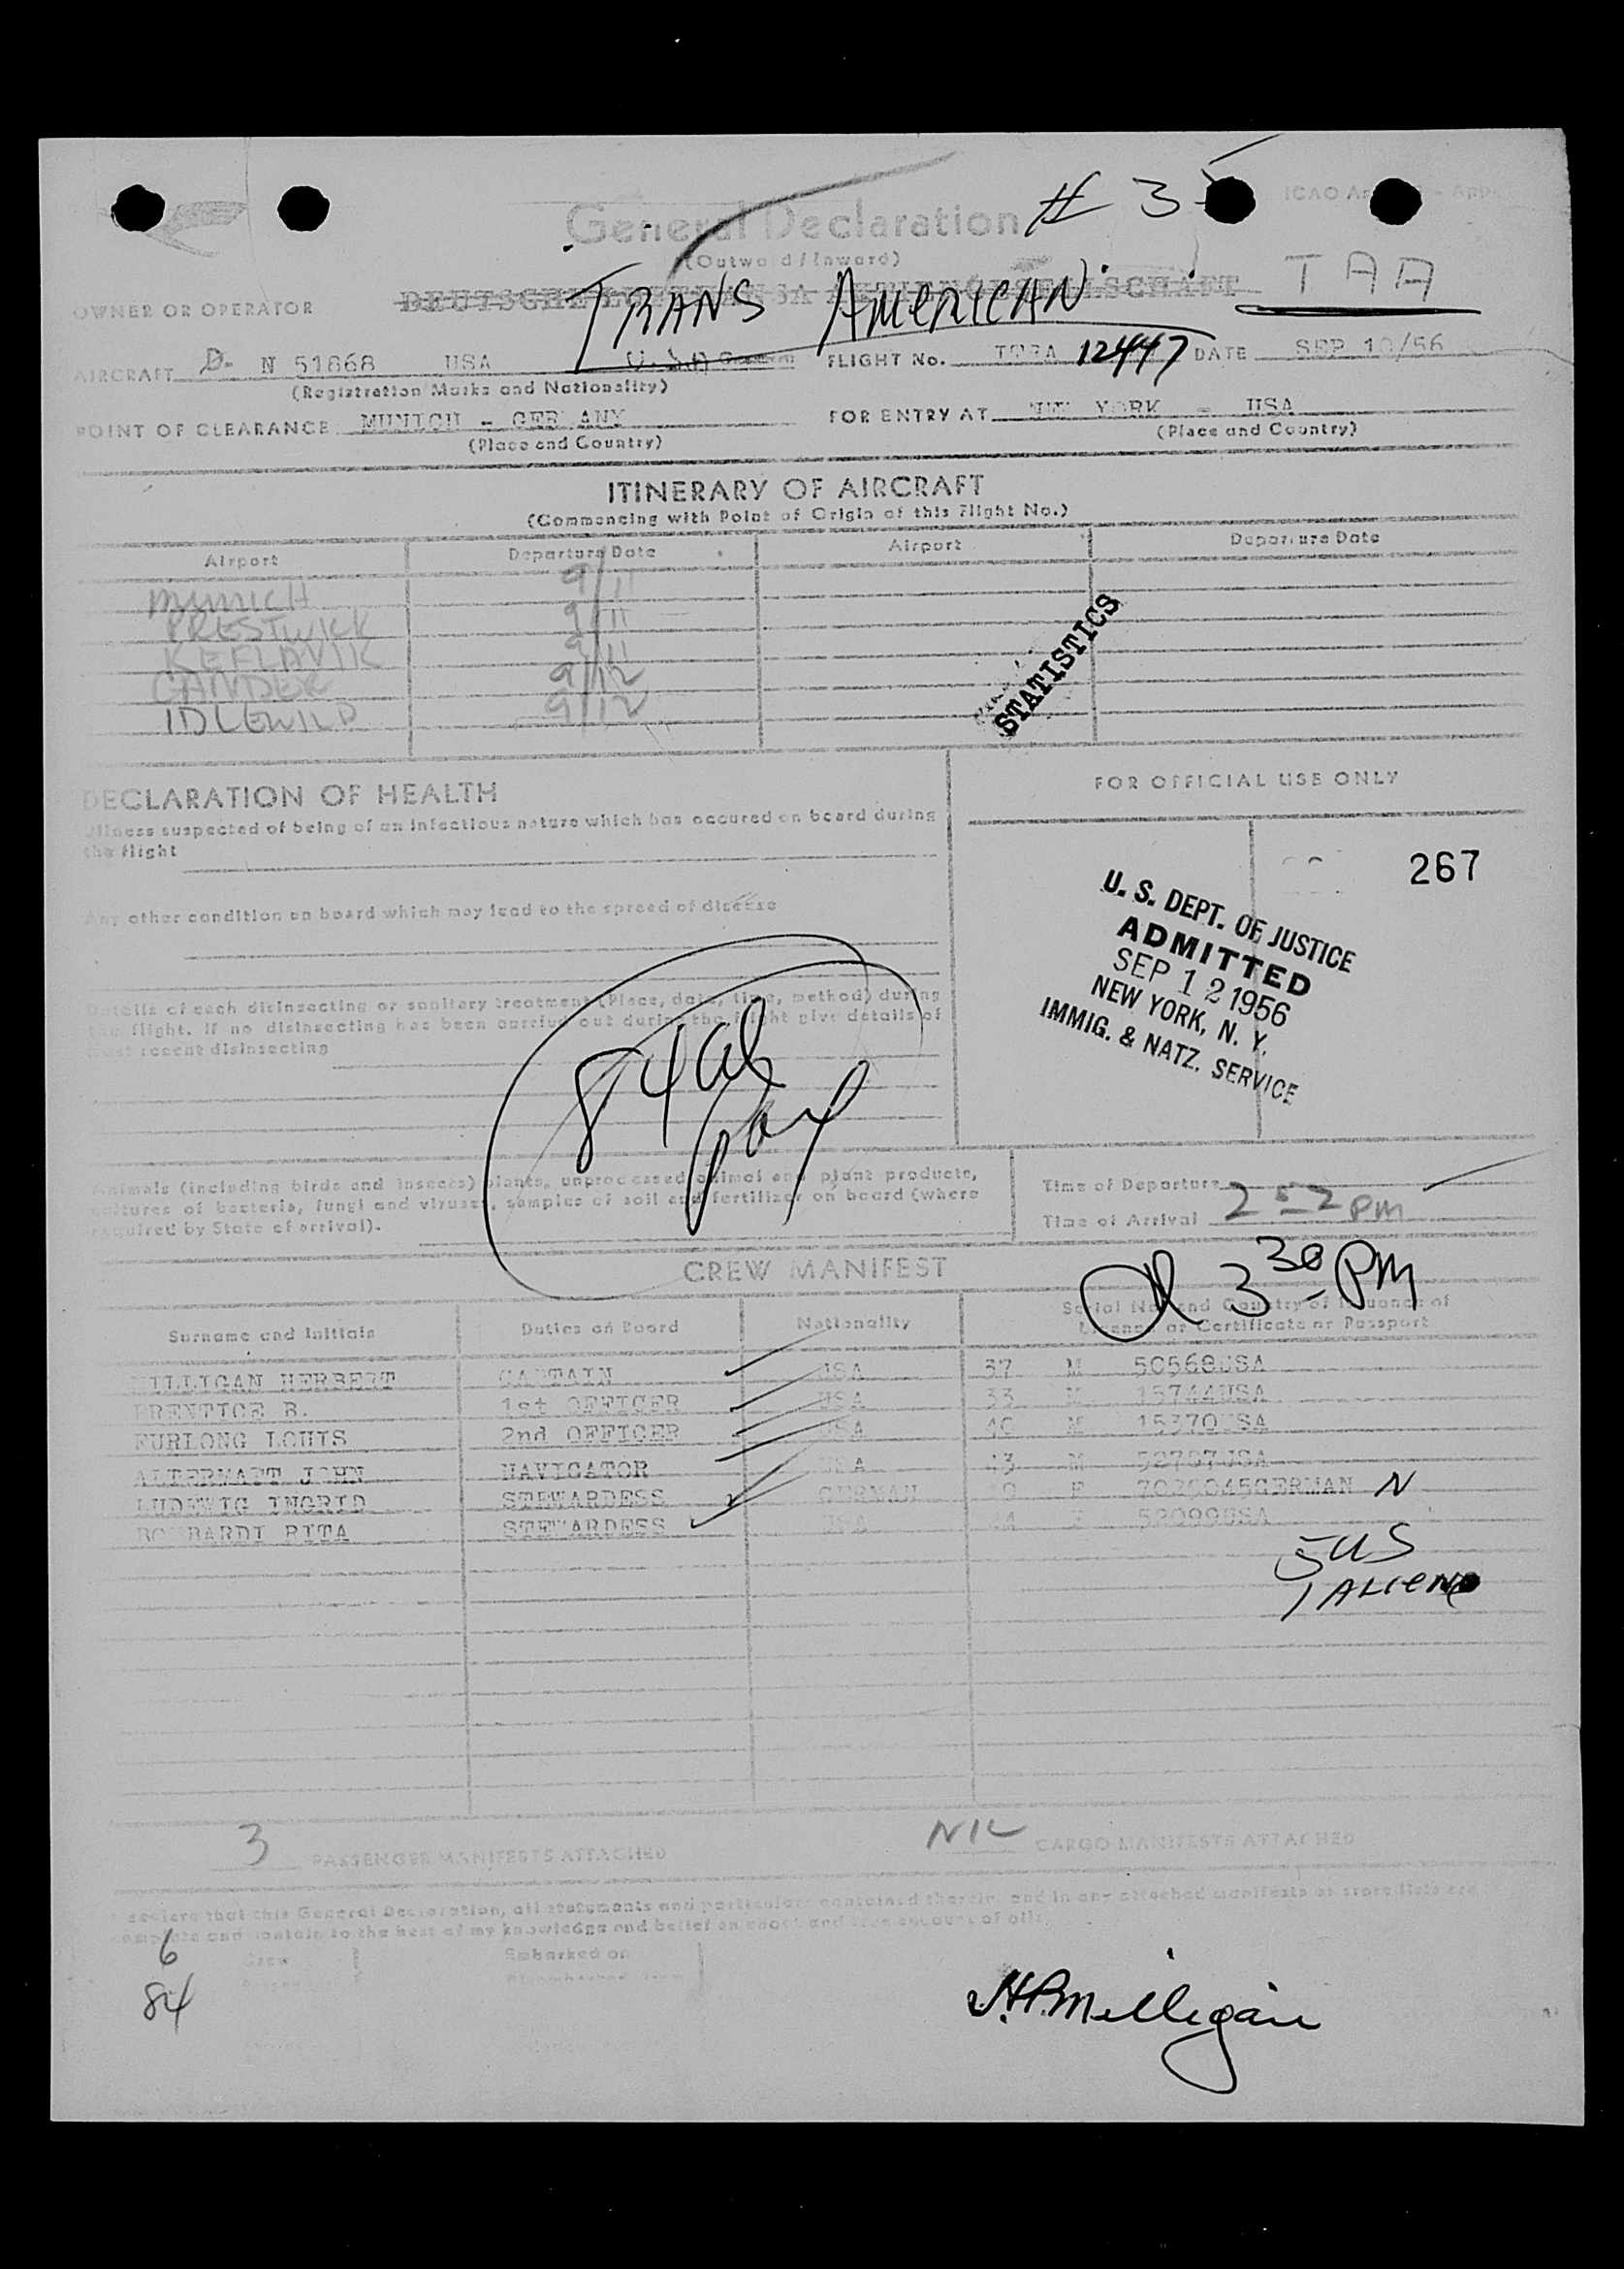 # 35
General Declaration
(Outward/Inward)
TAA
OWNER OR OPERATOR DEUTSCHE LUFTHANSA AKTIENGESELLSCHAFT
TRANS AMERICAN
AIRCRAFT D- N 51868 USA U.S.A FLIGHT No. 12447 DATE SEP 10/56
(Registration Marks and Nationality)
POINT OF CLEARANCE MUNICH - GER ANY FOR ENTRY AT NEW YORK - USA
(Place and Country) (Place and Country)
ITINERARY OF AIRCRAFT
(Commencing with Point of Origin of this Flight No.)
Airport Departure Date Airport Departure Date
MUNICH 9/11
PRESTWICK 9/11
KEFLAVIK 9/11
GANDER 9/12
IDLEWILD 9/12
STATISTICS
DECLARATION OF HEALTH
Illness suspected of being of an infectious nature which has occured on board during
the flight
Any other condition on board which may lead to the spread of disease
Details of each disinsecting or sanitary treatment (Place, date, time, method) during
the flight. If no disinsecting has been carried out during the flight give details of
most recent disinsecting
FOR OFFICIAL USE ONLY
267
U. S. DEPT. OF JUSTICE
ADMITTED
SEP 12 1956
NEW YORK, N. Y.
IMMIG. & NATZ. SERVICE
84
Animals (including birds and insects) plants, unprocessed animal and plant products,
cultures of bacteria, fungi and viruses, samples of soil and fertilizer on board (where
required by State of arrival).
Time of Departure
Time of Arrival 2 52 PM
3 30 PM
CREW MANIFEST
Surname and Initials Duties on Board Nationality Serial No. and Country of Issuance of
Licence or Certificate or Passport
MILLIGAN HERBERT CAPTAIN USA 37 M 50568USA
PRENTICE B. 1st OFFICER USA 33 M 15744USA
FURLONG LOUIS 2nd OFFICER USA 40 M 15370USA
ALTERMATT JOHN NAVIGATOR USA 43 M 52787USA
LUDEWIG INGRID STEWARDESS GERMAN F 7020045GERMAN N
BOMBARDI RITA STEWARDESS USA 52099USA
5 US
1 ALIEN
3 PASSENGER MANIFESTS ATTACHED NIL CARGO MANIFESTS ATTACHED
I declare that this General Declaration, all statements and particulars contained therein, and in any attached manifests or store lists are
complete and contain to the best of my knowledge and belief an exact and true account of all
6 Crew Embarked on
84
H.P. Milligan